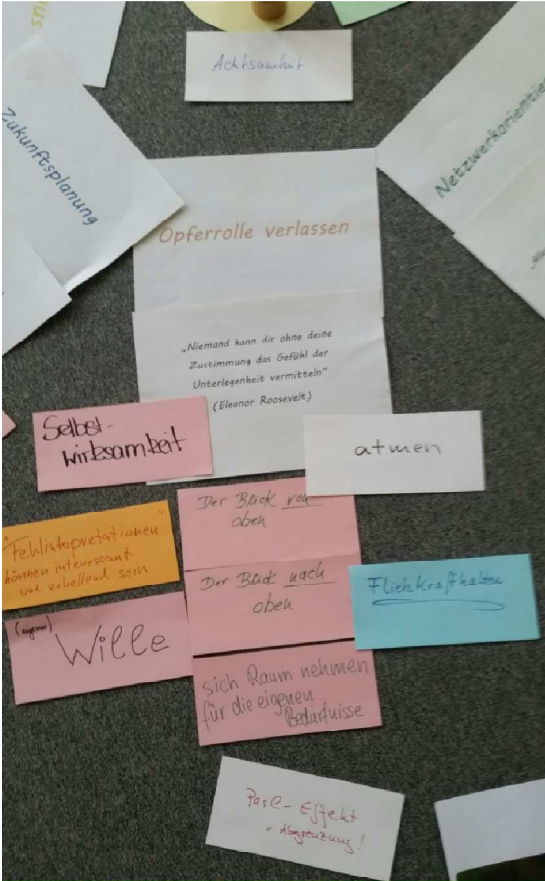 Achtsamkeit
Zukunftsplanung
Netzwerkorientie
Opferrolle verlassen
„Niemand kann dir ohne deine
Zustimmung das Gefühl der
Unterlegenheit vermitteln“
(Eleanor Roosevelt)
Selbst-
wirksamkeit
atmen
Der Blick von
oben
"Fehlinterpretationen"
können interessant
und erhellend sein
Der Blick nach
oben
Fliehkraft halten
(eigener)
Wille
sich Raum nehmen
für die eigenen
Bedürfnisse
Effekt
Abgrenzung!